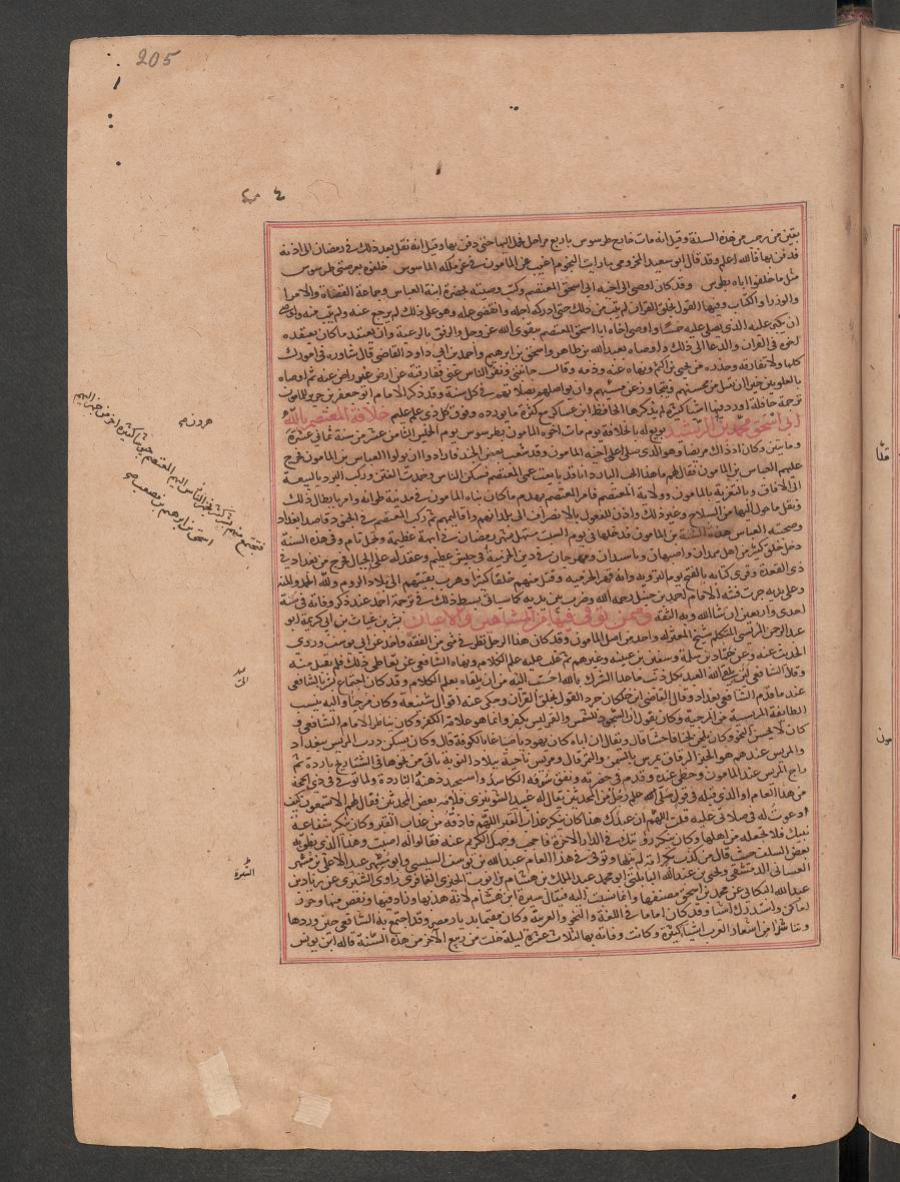 205
بقين من رجب من هذه السنة وقيل انه مات خارج طرسوس باربع مراحل فحمل اليها حتى دفن بها وقيل انه نقل بعد ذلك في رمضان الى اذنة
فدفن بها فالله اعلم وقد قال ابو سعيد المخزومي ما رايت النجوم اغنت عن المامون في عز ملكه الماسوس خلفوه بعرصتي طرسوس
مثل ما خلفوا اباه بطوس وقد كان اوصى الى اخيه ابي اسحق المعتصم وكتب وصيته بحضرة ابنه العباس وجماعة القضاة والامرا
والوزرا والكتاب وفيها القول بخلق القران لم يتب من ذلك حتى ادركه اجله وانقضى عمله وهو على ذلك لم يرجع عنه ولم يتب منه واوصى
ان يكبر عليه الذي يصلي عليه خمسا واوصى اخاه ابا اسحق المعتصم بتقوى الله عز وجل والرفق بالرعية وان يعتقد ما كان يعتقده
اخوه في القران والدعا الى ذلك واوصاه بعبد الله بن طاهر واسحق بن ابرهيم واحمد بن ابي داود القاضي قال شاوره في امورك
كلها ولا تفارقه وحذره من يحيى بن اكثم ونهاه عنه وذمه وقال خانني ونفر الناس عني ففارقته عن غير راض عنه ثم اوصاه
بالعلويين خيرا ان يقبل من محسنهم ويتجاوز عن مسيئهم وان يواصلهم بصلاتهم في كل سنة وقد ذكر الامام ابو جعفر بن جرير للمامون
ترجمة حافلة اورد فيها اشيا كثيرة لم يذكرها الحافظ ابن عساكر مع كثرة ما يورده وفوق كل ذي علم عليم خلافة المعتصم بالله
ابي اسحق محمد بن الرشيد بويع له بالخلافة يوم مات اخوه المامون بطرسوس يوم الخميس الثامن عشر من سنة ثماني عشرة
ومايتين وكان اذ ذاك مريضا وهو الذي صلى على اخيه المامون وقد شغب بعض الجند فارادوا ان يولوا العباس بن المامون فخرج
عليهم العباس بن المامون فقال لهم ما هذا الخلف البارد انا قد بايعت عمي المعتصم فسكن الناس وخمدت الفتن وركب البرد بالبيعة
الى الافاق وبالتعزية بالمامون وولاية المعتصم فامر المعتصم بهدم ما كان بناه المامون في مدينة طوانة وامر بابطال ذلك
ونقل ما حول اليها من السلاح وغير ذلك واذن للفعول بالانصراف الى بلدانهم واقاليمهم ثم ركب المعتصم في الجنود قاصدا بغداد
وصحبته العباس بن المامون فدخلها في يوم السبت مستهل شهر رمضان في ابهة عظيمة وتجمل تام وفي هذه السنة
دخل خلق كثير من اهل همدان واصبهان وماسبدان ومهرجان في دين الخرمية في جيش عظيم وعقد له على الجبال فخرج من بغداد في
ذي القعدة وقري كتابه بالفتح يوم التروية وانه قهر الخرميه وقتل منهم خلقا كثيرا وهرب بقيتهم الى بلاد الروم ولله الحمد والمنة
وعلى يديه جرت فتنة الامام احمد بن حنبل رحمه الله وضرب بين يديه كما سياتي بسط ذلك في ترجمة احمد عند ذكر وفاته في سنة
احدى واربعين ان شا الله وبه الثقة وممن توفي فيها من المشاهير والاعيان بشر بن غياث بن ابي كريمة ابو
عبد الرحمن المريسي المتكلم شيخ المعتزله واحد من اضل المامون وقد كان هذا الرجل نظر في شي من الفقه واخذ عن ابي يوسف وروى
الحديث عنه وعن حماد بن سلمة وسفين بن عيينه وغيرهم ثم غلب عليه علم الكلام ونهاه الشافعي عن تعاطي ذلك فلم يقبل منه
وقال الشافعي لئن يلقى الله العبد بكل ذنب ما عدا الشرك بالله احب اليه من ان يلقاه بعلم الكلام وقد كان اجتماع بشر بالشافعي
عند ما قدم الشافعي بغداد وقال القاضي ابن خلكان جرد القول بخلق القران وحكي عنه اقوال شنيعة وكان مرجيا واليه ينسب
الطايفة المريسية من المرجية وكان يقول ان السجود للشمس والقمر ليس بكفر وانما هو علامة الكفر وكان يناظر الامام الشافعي و
كان لا يحسن النحو وكان يلحن لحنا فاحشا قال ويقال ان اباه كان يهوديا صباغا بالكوفة قال وكان يسكن درب المريس ببغداد
والمريس عندهم هو الخبز الرقاق يمرس بالسمن والتمر قال ومريس ناحية ببلاد النوبة ياتي من نحوها في الشتا ريح باردة ثم
راج المريسي عند المامون وحظي عنده وقدم في حضرته ونفق سوقه الكاسد واستجد ذهنه البارد ولما توفي في ذي الحجة
من هذا العام او الذي قبله صلى عليه رجل من المحدثين يقال له عبيد الشونيزي فلامه بعض المحدثين فقال لهم الا تسمعون كيف
دعوت له في صلاتي عليه قلت اللهم ان عبدك هذا كان ينكر عذاب القبر اللهم فاذقه من عذاب القبر وكان ينكر شفاعة
نبيك فلا تجعله من اهلها وكان ينكر رؤيتك في الدار الاخرة فاحجب وجهك الكريم عنه فقالوا له اصبت وهذا الذي نطق به
بعض السلف حيث قال من كذب بكرامة لم ينلها وتوفي في هذا العام عبد الله بن يوسف التنيسي وابو مسهر عبد الاعلى بن مسهر
الغساني الدمشقي ويحيى بن عبد الله البابلتي ابو محمد عبد الملك بن هشام بن ايوب الحميري المعافري راوي السيرة عن زياد بن
عبد الله البكائي عن محمد بن اسحق مصنفها وانما نسبت اليه فيقال سيرة ابن هشام لانه هذبها وزاد فيها ونقص منها وحرر
اماكن واستدرك اشيا وقد كان اماما في اللغة والنحو والعربية وكان مقيما بديار مصر وقد اجتمع به الشافعي حين وردها
وتناشدا من اشعار العرب اشيا كثيرة وكانت وفاته بها لثلاث عشرة ليلة خلت من ربيع الاخر من هذه السنة قاله ابن يونس
هرون
اسحق بن ابرهيم بن مصعب